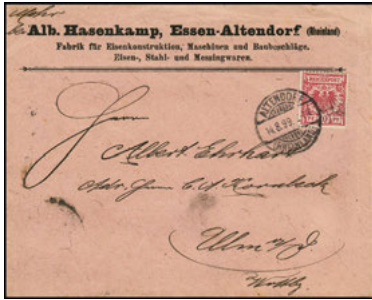 Alb. Hasenkamp, Essen-Altendorf (Rheinland)
Fabrik für Eisenkonstruktion, Maschinen und Baubeschläge.
Eisen-, Stahl- und Messingwaren.
REICHSPOST
ALTENDORF
14.8.99
(RHEINLAND)
Herrn
Albert Ehrhart
Adr. Herrn C. A. Kornbeck
Ulm a/D.